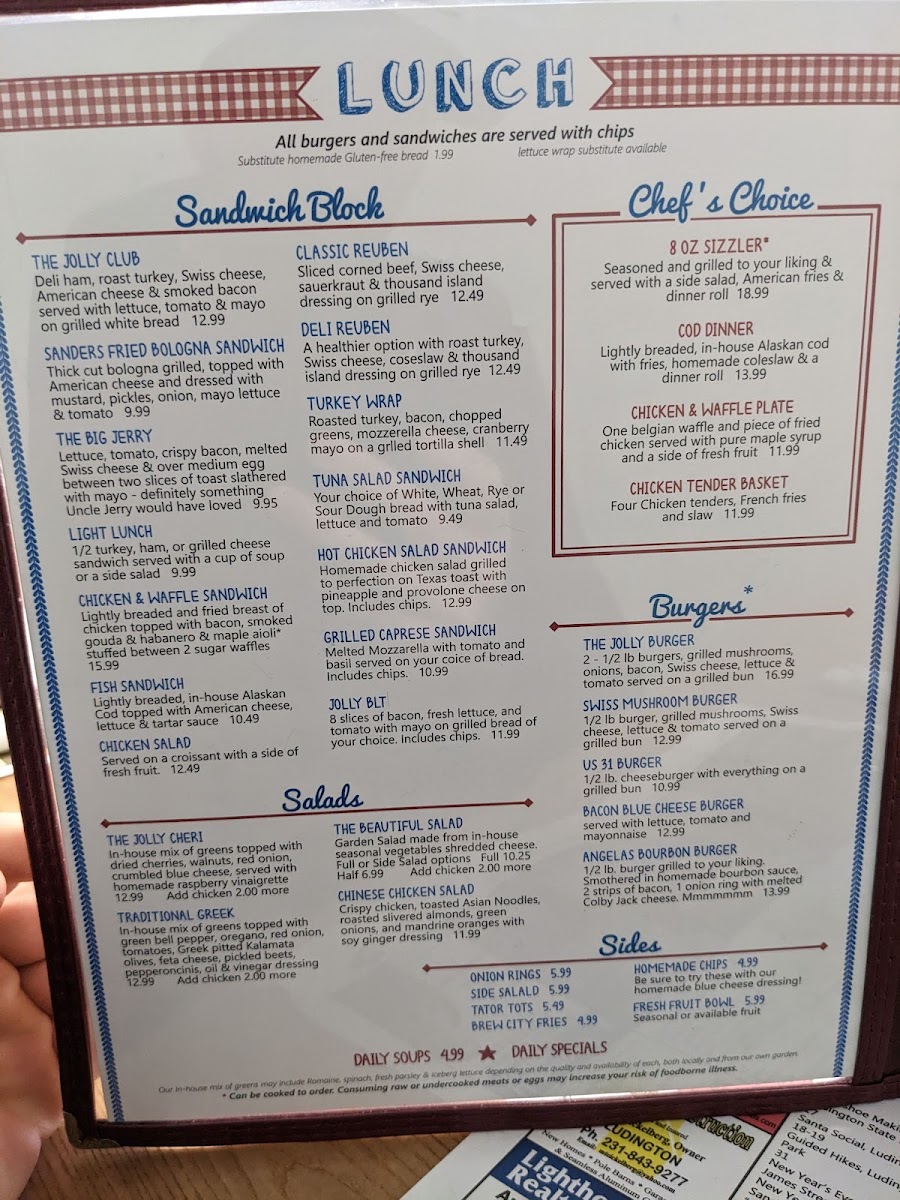 LUNCH
All burgers and sandwiches are served with chips
Substitute homemade Gluten-free bread 1.99
lettuce wrap substitute available
Sandwich Block
THE JOLLY CLUB
Deli ham, roast turkey, Swiss cheese,
American cheese & smoked bacon
served with lettuce, tomato & mayo
on grilled white bread 12.99
SANDERS FRIED BOLOGNA SANDWICH
Thick cut bologna grilled, topped with
American cheese and dressed with
mustard, pickles, onion, mayo lettuce
& tomato 9.99
THE BIG JERRY
Lettuce, tomato, crispy bacon, melted
Swiss cheese & over medium egg
between two slices of toast slathered
with mayo - definitely something
Uncle Jerry would have loved 9.95
LIGHT LUNCH
1/2 turkey, ham, or grilled cheese
sandwich served with a cup of soup
or a side salad 9.99
CHICKEN & WAFFLE SANDWICH
Lightly breaded and fried breast of
chicken topped with bacon, smoked
gouda & habanero & maple aioli*
stuffed between 2 sugar waffles
15.99
FISH SANDWICH
Lightly breaded, in-house Alaskan
Cod topped with American cheese,
lettuce & tartar sauce 10.49
CHICKEN SALAD
Served on a croissant with a side of
fresh fruit. 12.49
CLASSIC REUBEN
Sliced corned beef, Swiss cheese,
sauerkraut & thousand island
dressing on grilled rye 12.49
DELI REUBEN
A healthier option with roast turkey,
Swiss cheese, coseslaw & thousand
island dressing on grilled rye 12.49
TURKEY WRAP
Roasted turkey, bacon, chopped
greens, mozzerella cheese, cranberry
mayo on a grlled tortilla shell 11.49
TUNA SALAD SANDWICH
Your choice of White, Wheat, Rye or
Sour Dough bread with tuna salad,
lettuce and tomato 9.49
HOT CHICKEN SALAD SANDWICH
Homemade chicken salad grilled
to perfection on Texas toast with
pineapple and provolone cheese on
top. Includes chips. 12.99
GRILLED CAPRESE SANDWICH
Melted Mozzarella with tomato and
basil served on your coice of bread.
Includes chips. 10.99
JOLLY BLT
8 slices of bacon, fresh lettuce, and
tomato with mayo on grilled bread of
your choice. Includes chips. 11.99
Chef's Choice
8 OZ SIZZLER*
Seasoned and grilled to your liking &
served with a side salad, American fries &
dinner roll 18.99
COD DINNER
Lightly breaded, in-house Alaskan cod
with fries, homemade coleslaw & a
dinner roll 13.99
CHICKEN & WAFFLE PLATE
One belgian waffle and piece of fried
chicken served with pure maple syrup
and a side of fresh fruit 11.99
CHICKEN TENDER BASKET
Four Chicken tenders, French fries
and slaw 11.99
Burgers*
THE JOLLY BURGER
2 - 1/2 lb burgers, grilled mushrooms,
onions, bacon, Swiss cheese, lettuce &
tomato served on a grilled bun 16.99
SWISS MUSHROOM BURGER
1/2 lb burger, grilled mushrooms, Swiss
cheese, lettuce & tomato served on a
grilled bun 12.99
US 31 BURGER
1/2 lb. cheeseburger with everything on a
grilled bun 10.99
BACON BLUE CHEESE BURGER
served with lettuce, tomato and
mayonnaise 12.99
ANGELAS BOURBON BURGER
1/2 lb. burger grilled to your liking.
Smothered in homemade bourbon sauce,
2 strips of bacon, 1 onion ring with melted
Colby Jack cheese. Mmmmmmm 13.99
Salads
THE JOLLY CHERI
In-house mix of greens topped with
dried cherries, walnuts, red onion,
crumbled blue cheese, served with
homemade raspberry vinaigrette
12.99 Add chicken 2.00 more
TRADITIONAL GREEK
In-house mix of greens topped with
green bell pepper, oregano, red onion,
tomatoes, Greek pitted Kalamata
olives, feta cheese, pickled beets,
pepperoncinis, oil & vinegar dressing
12.99 Add chicken 2.00 more
THE BEAUTIFUL SALAD
Garden Salad made from in-house
seasonal vegetables shredded cheese.
Full or Side Salad options Full 10.25
Half 6.99 Add chicken 2.00 more
CHINESE CHICKEN SALAD
Crispy chicken, toasted Asian Noodles,
roasted slivered almonds, green
onions, and mandrine oranges with
soy ginger dressing 11.99
Sides
ONION RINGS 5.99
SIDE SALALD 5.99
TATOR TOTS 5.49
BREW CITY FRIES 4.99
HOMEMADE CHIPS 4.99
Be sure to try these with our
homemade blue cheese dressing!
FRESH FRUIT BOWL 5.99
Seasonal or available fruit
DAILY SOUPS 4.99 ★ DAILY SPECIALS
Our In-house mix of greens may include Romaine, spinach, fresh parsley & iceberg lettuce depending on the quality and availability of each, both locally and from our own garden.
* Can be cooked to order. Consuming raw or undercooked meats or eggs may increase your risk of foodborne illness.
Owner
LUDINGTON
Ph. 231-843-9277
New Homes • Pole Barns
& Seamless Aluminum
Santa Social,
18-19
Guided Hikes,
Park
31
New Year's
James